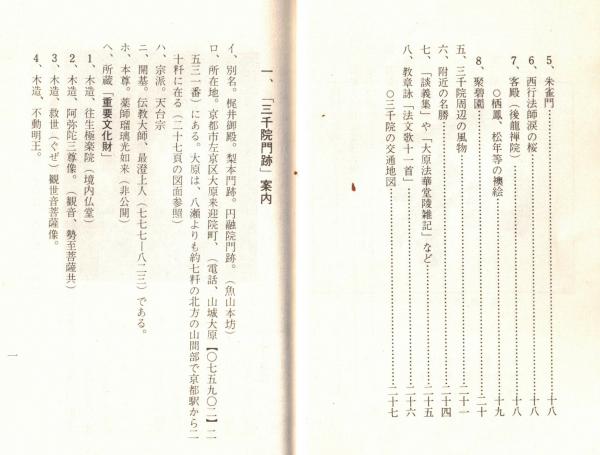 5、朱雀門……………………………………十八
6、西行法師涙の桜……………………………十八
7、客殿（後龍禅院）…………………………十八
○栖鳳、松年等の襖絵…………………………十九
8、聚碧園……………………………………二十
五、三千院周辺の風物…………………………二十一
六、附近の名勝…………………………………二十四
七、「談義集」や「大原法華堂陵雑記」など……二十五
八、教章詠「法文歌十一首」……………………二十六
○三千院の交通地図……………………………二十七
一、「三千院門跡」案内
イ、別名。梶井御殿。梨本門跡。円融院門跡。（魚山本坊）
ロ、所在地。京都市左京区大原来迎院町、（電話、山城大原【〇七五九〇二】二
五三一番）にある。大原は、八瀬よりも約七粁の北方の山間部で京都駅から二
十粁に在る（二十七頁の図面参照）
ハ、宗派。天台宗
ニ、開基。伝教大師、最澄上人（七七七―八二三）である。
ホ、本尊。薬師瑠璃光如来（非公開）
ヘ、所蔵「重要文化財」
1、木造、往生極楽院（境内仏堂）
2、木造、阿弥陀三尊像。（観音、勢至菩薩共）
3、木造、救世（ぐぜ）観世音菩薩像。
4、木造、不動明王。
一